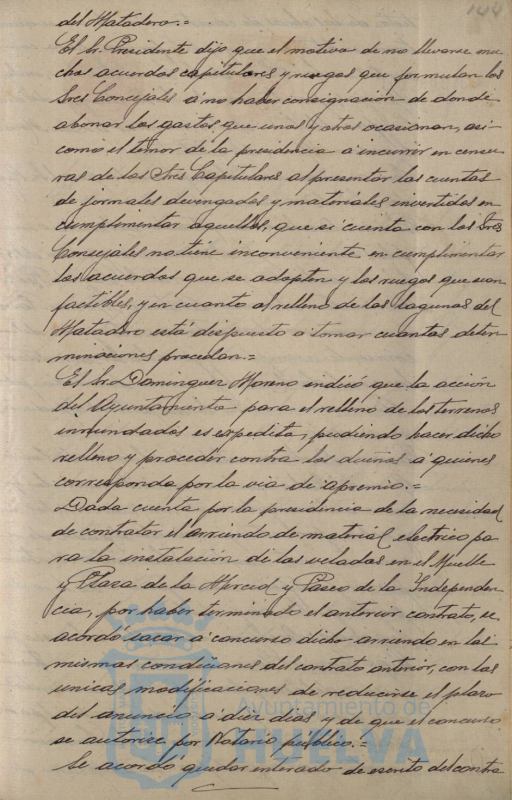 144
del Matadero.=
El Sr. Presidente dijo que el motivo de no llevarse mu-
chos acuerdos capitulares y ruegos que formulan los
Sres Concejales á no haber consignacion de donde
abonar los gastos que unos y otros ocasionan, asi
como el temor de la presidencia á incurrir en censu-
ras de los Sres Capitulares al presentar las cuentas
de jornales devengados y materiales invertidos en
cumplimentar aquellos, que si cuenta con los Sres
Concejales no tiene inconveniente en cumplimentar
los acuerdos que se adopten y los ruegos que sean
factibles, y en cuanto al relleno de las lagunas del
Matadero está dispuesto á tomar cuantas deter-
minaciones procedan.=
El Sr. Dominguez Moreno indicó que la acción
del Ayuntamiento para el relleno de los terrenos
inundados es expedita, pudiendo hacer dicho
relleno y proceder contra los dueños á quienes
corresponda por la via de apremio.=
Dada cuenta por la presidencia de la necesidad
de contratar el arriendo de material electrico pa-
ra la instalación de las veladas en el Muelle
y Plaza de la Merced y Paseo de la Independen-
cia, por haber terminado el anterior contrato, se
acordó sacar á concurso dicho arriendo en las
mismas condiciones del contrato anterior, con las
unicas modificaciones de reducirse el plazo
del anuncio á diez dias y de que el concurso
se autorice por Notario publico.=
Se acordó quedar enterado de escrito del contra-
Ayuntamiento de
HUELVA